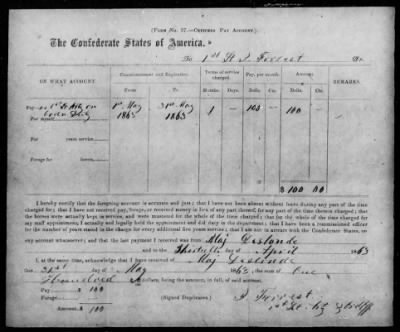 (FORM NO. 37.—OFFICERS PAY ACCOUNT.)
The Confederate States of America.
To 1st Lt J. Forrest Dr.
ON WHAT ACCOUNT.
Commencement and Expiration.
Terms of service charged.
Pay, per month.
Amount.
REMARKS.
From To Months. Days. Dolls. Cts. Dolls. Cts.
Pay—
For myself,
1st May 1863 31st May 1863 1 - 100 100
For years service
Forage for horses
$ 100 00
I hereby certify that the foregoing account is accurate and just; that I have not been absent without leave during any part of the
time charged for; that I have not received pay, forage, or received money in lieu of any part thereof, for any part of the time therein charged; that
the horses were actually kept in service, and were mustered for the whole of the time charged; that for the whole of the time charged for
my staff appointment, I actually and legally held the appointment and did duty in the department; that I have been a commissioned officer
for the number of years stated in the charge for every additional five years service; that I am not in arrears with the Confederate States, on
any account whatsoever; and that the last payment I received was from Maj Deslonde
and to the Thirtieth day of April 1863
I, at the same time, acknowledge that I have received of Maj Deslonde
this 31st day of May 1863, the sum of One
Hundred dollars, being the amount, in full, of said account.
Pay $ 100
Forage
Amount $ 100
(Signed Duplicates.)
J Forrest